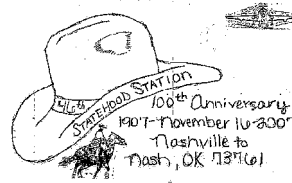 46th
STATEHOOD STATION
100th Anniversary
1907-November 16-2007
Nashville to
Nash, OK 73761